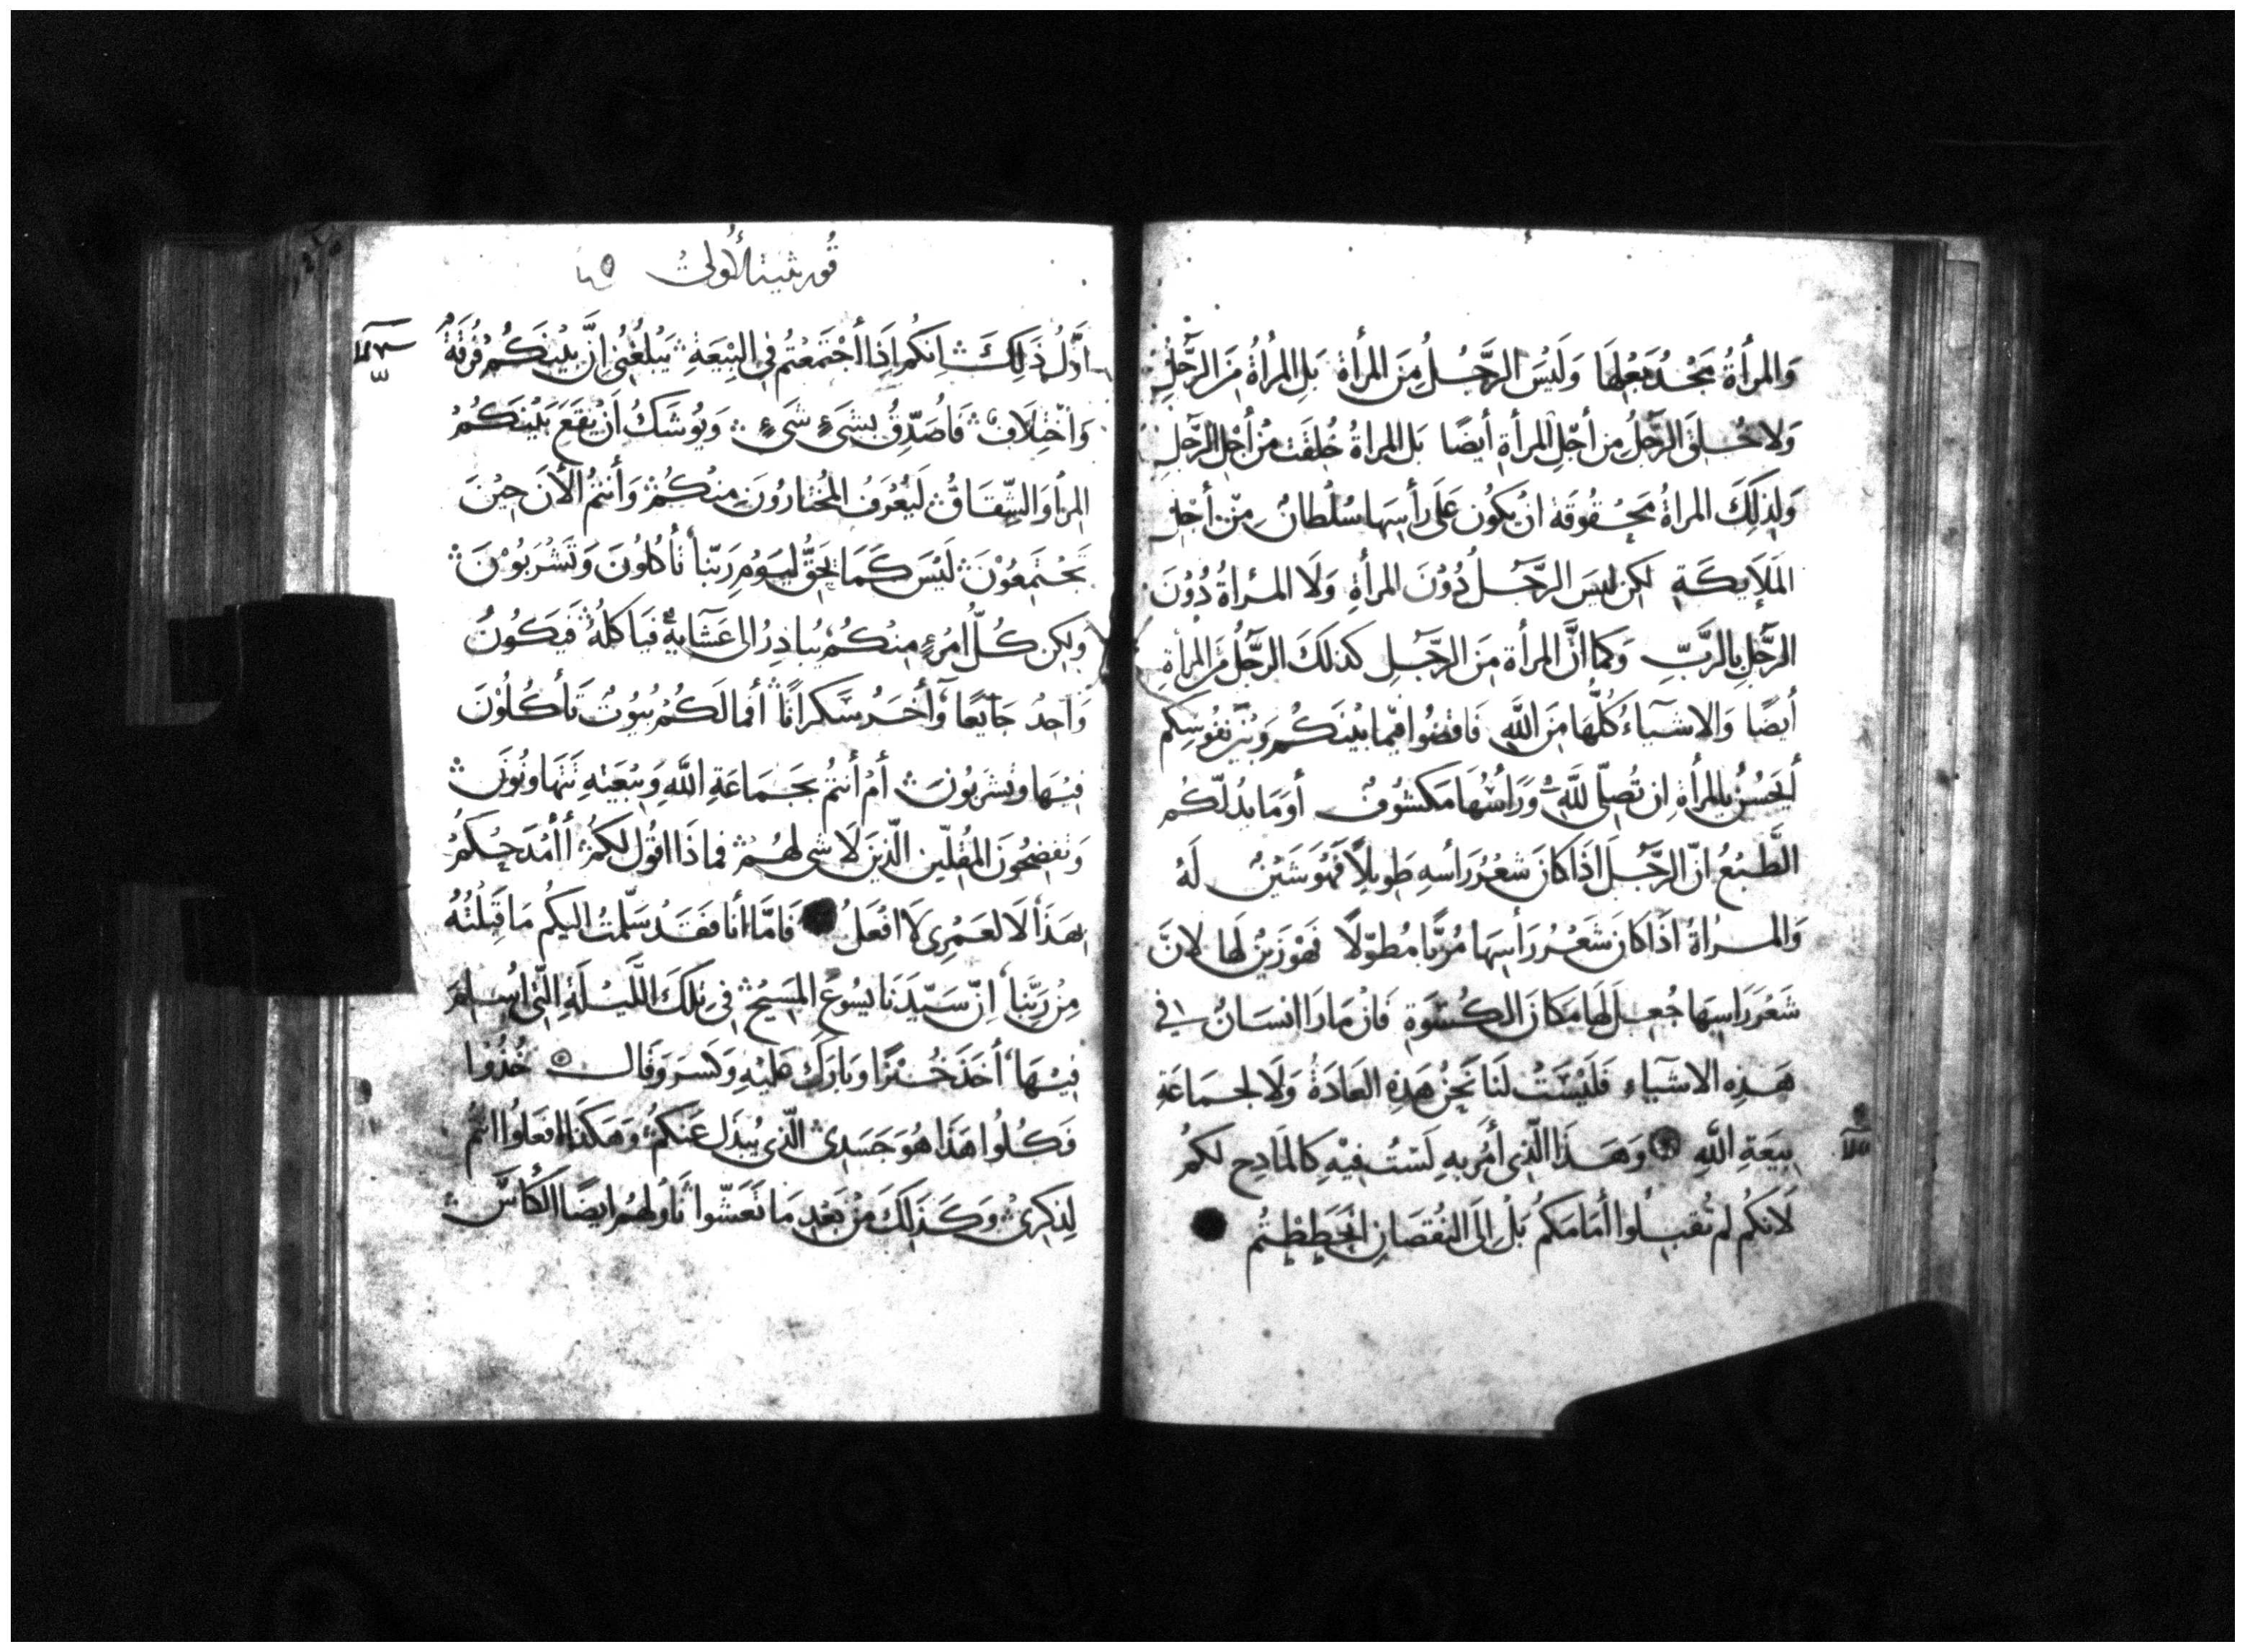 وَالمرأَةُ مَجْدُ بَعْلِهَا وَلَيْسَ الرَّجُلُ مِنَ المرأَة بَلِ المرْأَةُ مِنَ الرَّجُلِ
وَلا خُلِقَ الرَّجُلُ مِن أَجْلِ المرأَةِ أيضًا بَل المراةُ خُلِقَت مِنْ أَجْلِ الرَّجلِ
وَلِذلِكَ المراةُ مَحْقُوقَة انْ يَكُون عَلَى رأسِهَا سُلْطانٌ مِنْ أَجْلِ
المَلَايكَةِ لكِن ليسَ الرَّجُلُ دُوْنَ المرأَةِ وَلَا المراةُ دُوْنَ
الرَّجُلِ بِالرَّبِّ وَكما انَّ المرأة مِنَ الرَّجُلِ كَذلكَ الرَّجُلُ مِنَ المرأَةِ
أيضًا وَالاشيآءُ كُلُّهَا مِنَ اللَّهِ فَاقضُوا فيما بَيْنَكُم وَبَيْنَ نفُوسِكُم
أَيَحْسُنُ بِالمرأَةِ ان تُصَلِّي لِلَّهِ وَرَأْسُهَا مَكشُوفٌ أوَ مَا يَدُلّكُم
الطَّبْعُ انّ الرَّجُلَ اذَا كانَ شَعْرُ رَأسهِ طَوِيلاً فَهُوَ شَيْنٌ لَهُ
وَالمراةُ اذَا كانَ شَعْرُ رَأسِهَا مُرَبًّا مُطوّلًا فَهْوَ زَيْنٌ لها لانّ
شَعْرَ رَاسِهَا جُعِلَ لَهَا مَكانَ الكُسْوَةِ فَانْ مَارَا انسَانٌ في
هَذِهِ الاشيَآءِ فَلَيْسَتْ لَنَا نَحْنُ هَذِهِ العَادَةُ وَلَا لجمَاعَةِ
بِيعَةِ اللَّهِ وَهَذَا الَّذِى أَمُر بِهِ لَسْتُ فِيْهِ كَالمَادِحِ لكمُ
لَانكُم لم تُقبِلُوا أمَامَكُم بَلْ إلَى النُقصَانِ انْحَطَطْتُم
قورنثيه الأولى
اوَّلُ ذَلِكَ انكُم اذَا أجْتَمَعْتُم فِي البِيْعَةِ يَبْلُغُنِي انَّ بَيْنَكُمْ فُرقَةً
وَاخْتِلَافٌ فَاُصَدِّقُ بِشَيءٍ شَيءٍ وَيُوشَكُ اَنْ يَقَعَ بَيْنَكُمْ
المِرَأُ وَالشِّقَاقُ لَيُعْرَفُ المُختارُونَ مِنْكُمْ وَأنتُمُ الأنَ حِيْنَ
تَجْتَمِعُوْنَ لَيْسَ كَمَا يَحِقُّ لِيَوْمِ رَبّنا تَأكُلُونَ وَتَشْرَبُوْنَ
وَلكِن كُلُّ امْرُءٍ مِنكُمْ يُبَادِرُ الى عَشَايهِ فَيَاكلُهُ فَيَكُونُ
وَاحِدٌ جَايعًا وَأخَرُ سَكرانًا أفمَا لَكُمْ بُيُوتٌ تَأكُلُوْنَ
فِيْهَا وتشرَبُونَ أمْ أَنتمُ بجَمَاعَةِ اللَّهِ وَبِيْعَتِهِ تَتهَاونُونَ
وَتفضحُونَ المُقلّين الّذِينَ لَا شي لهُمْ فماذَا اقُول لكمُ أأمْدَحُكُمْ
بهَذَا لَا لعَمْرِي لَا افْعَلُ فَامَّا أنا فَقَدْ سَلَّمتُ اليكُم مَا قَبِلْتُهُ
مِنْ رَبِّنا انّ سَيّدَنا يسُوعَ المَسِيْحُ في تِلكَ اللَّيْلَةِ الّتي اُسْلِمَ
فِيْهَا أخَذَ خُبْزًا وَبارَكَ عَليْهِ وَكسَرَ وَقَالَ خُذُوْا
فَكُلُوا هَذَا هُوَ جَسَدِي الَّذِى يُبْذَل عَنكُمْ وَهَكَذَا افعَلُوا انتُم
لِذِكرِي وَكَذلِكَ مِنْ بَعْدِ مَا تَعَشّوا نَاوَلَهُم ايضًا الكَأسَ